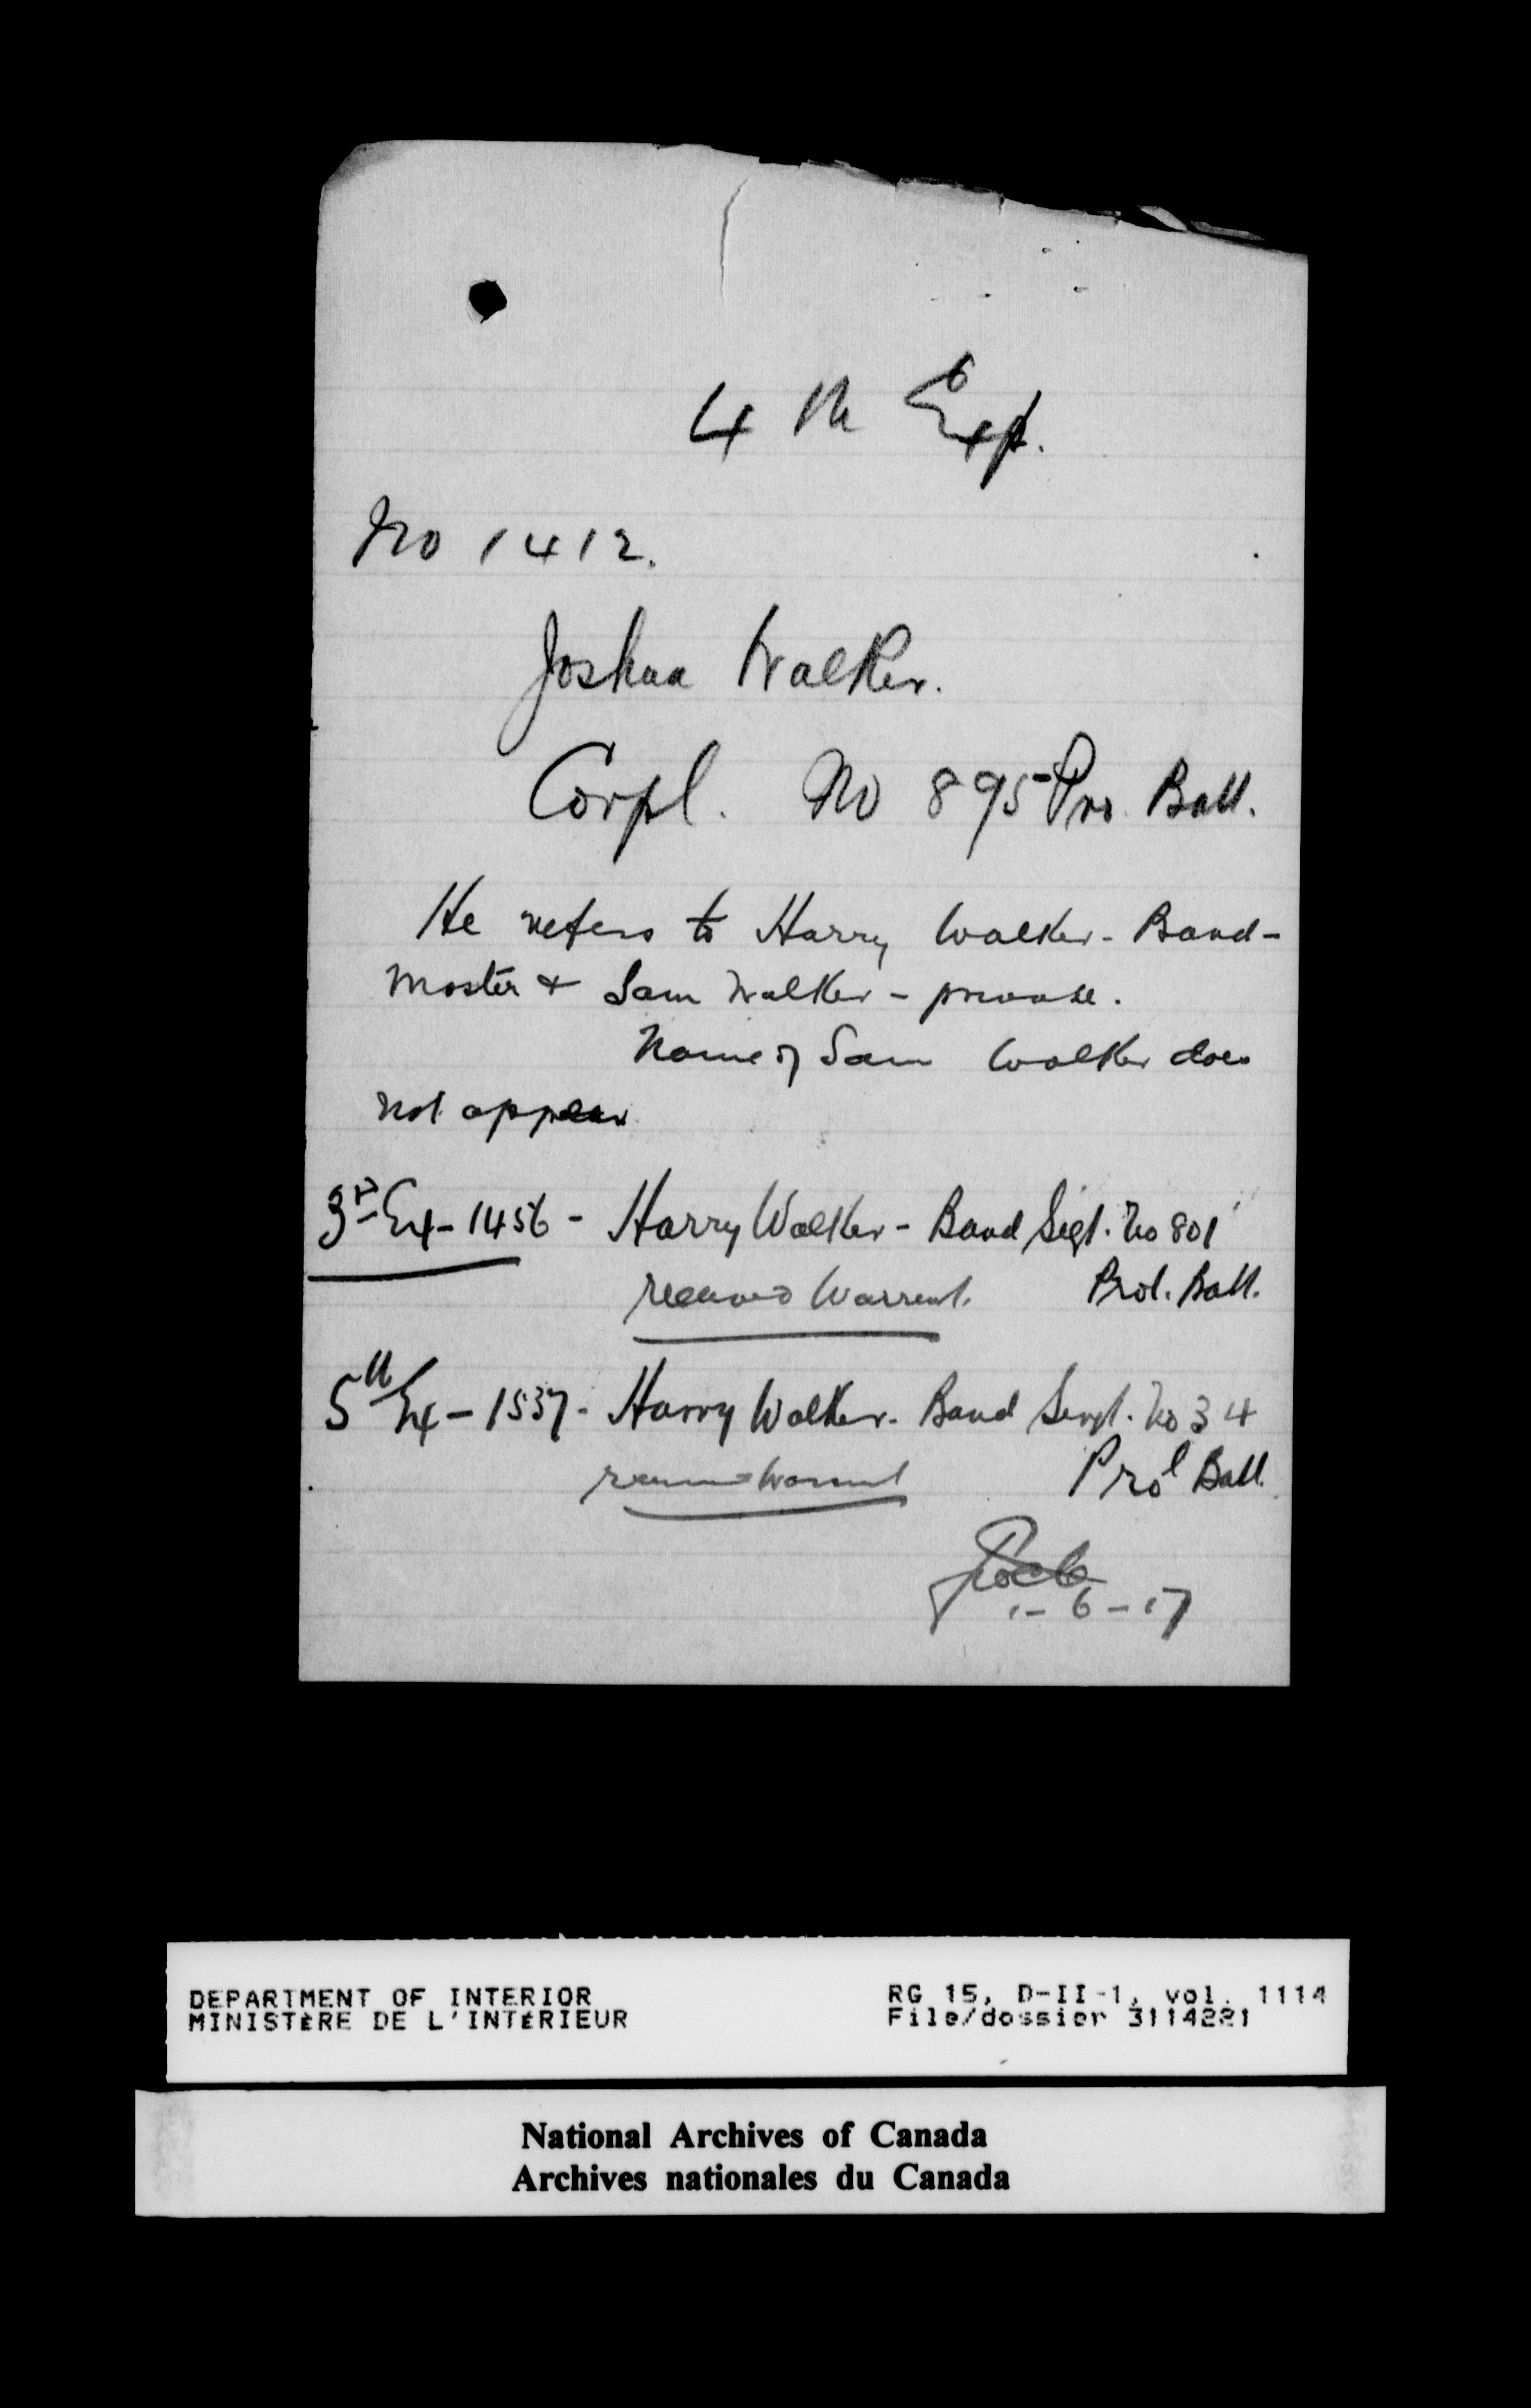 4 th Exp.
No 1412.
Joshua Walker.
Corpl. No 895 Pro. Batt.
He refers to Harry Walker - Band-
master & Sam Walker - private.
Name of Sam Walker does
not appear
3rd Ex - 1456 - Harry Walker - Band Sigt. No 801
received Warrant. Prov. Batt.
5th Ex - 1537 - Harry Walker - Band Sergt. No 34
received warrant Prol Batt.
1-6-17
DEPARTMENT OF INTERIOR RG 15, D-II-1, vol. 1114
MINISTÈRE DE L'INTÉRIEUR File/dossier 3114221
National Archives of Canada
Archives nationales du Canada